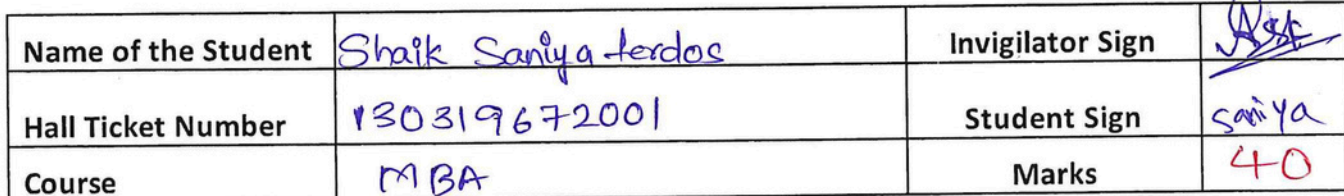 Name of the Student Shaik Saniya ferdos Invigilator Sign
Hall Ticket Number 130319672001 Student Sign saniya
Course MBA Marks 40